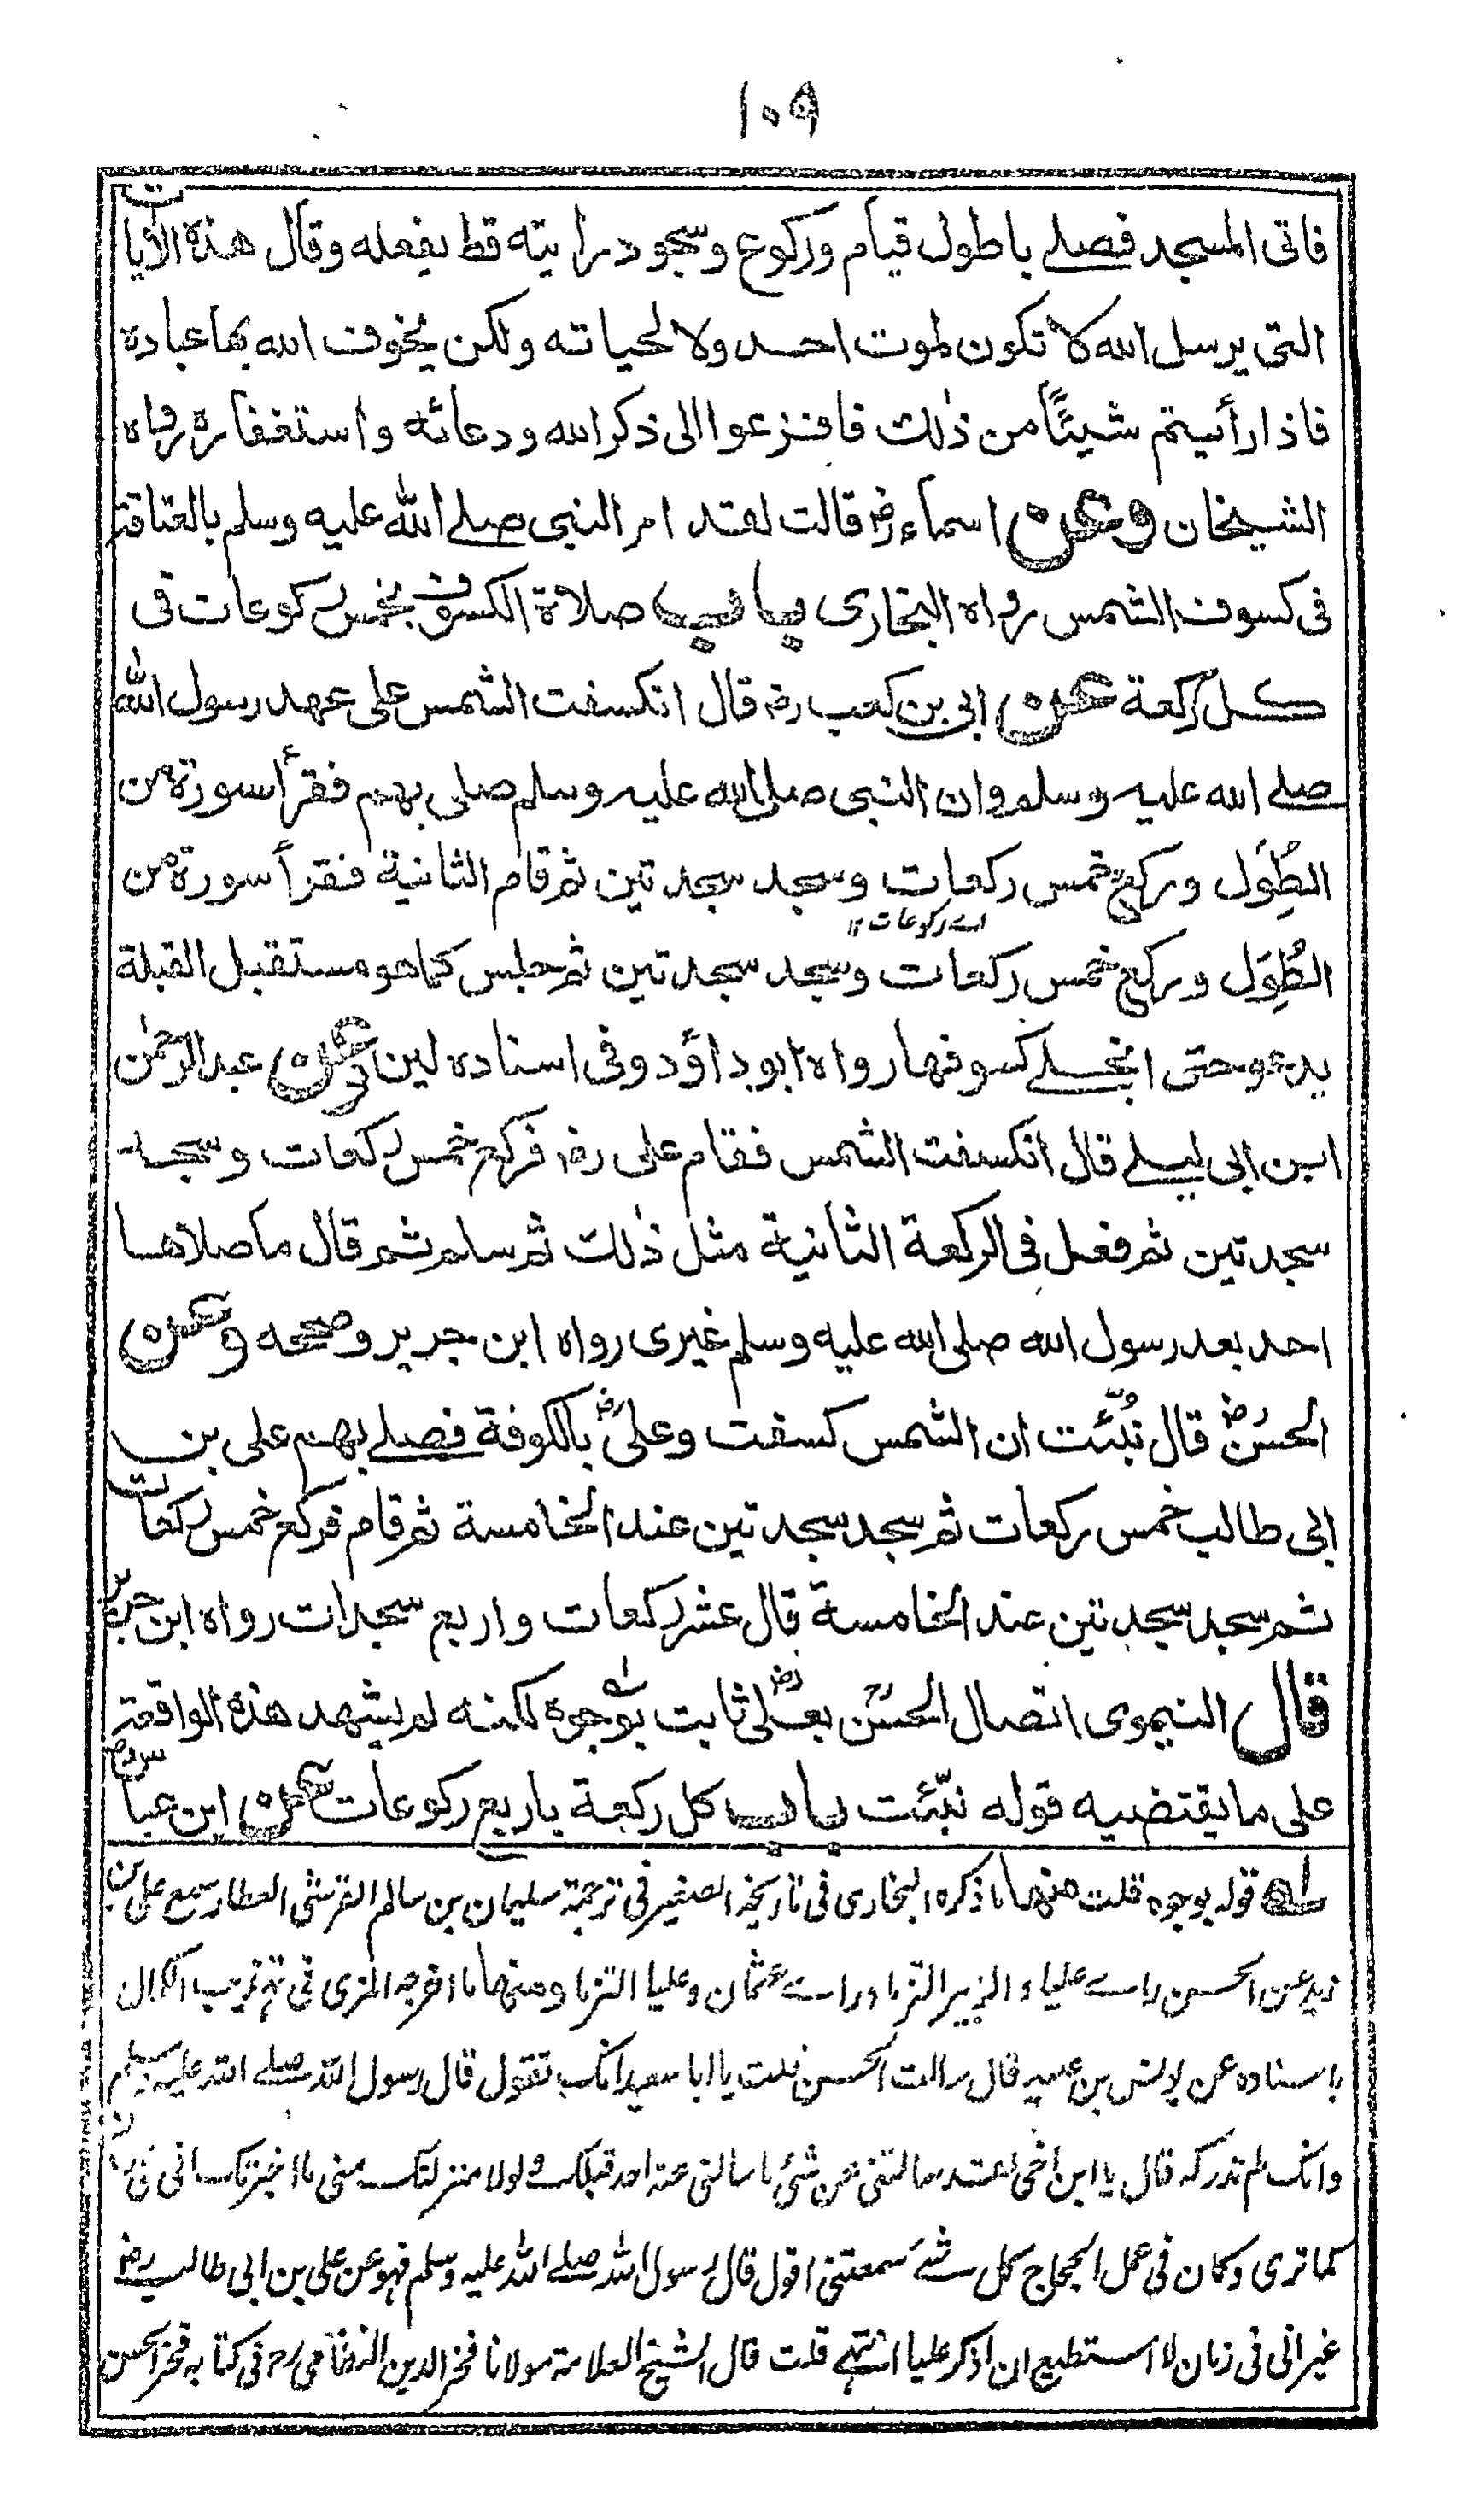 ١٠٩
فاتى المسجد فصلے باطول قيام وركوع وسجود رأيته قط يفعله وقال هذه الأيات
التى يرسل الله لا تكون لموت احد ولا لحياته ولكن يخوف الله بها عباده
فاذا رأيتم شيئًا من ذٰلك فافزعوا الى ذكر الله ودعائه واستغفاره رواه
الشيخان وعن اسماء رض قالت لقد امر النبى صلے الله عليه وسلم بالعتاقة
فى كسوف الشمس رواه البخارى باب صلاة الكسوف بخمس ركوعات فى
كل ركعة عن ابى بن كعب رض قال انكسفت الشمس على عهد رسول الله
صلے الله عليه وسلم وان النبى صلى الله عليه وسلم صلى بهم فقرأ سورة من
الطُوَل وركع خمس ركعات وسجد سجدتين ثم قام الثانية فقرأ سورة من
اے ركوعات ١٢
الطُوَل وركع خمس ركعات وسجد سجدتين ثم جلس كما هو مستقبل القبلة
يدعو حتى انجلے كسوفها رواه ابو داؤد وفى اسناده لين وعن عبد الرحمٰن
ابن ابى ليلے قال انكسفت الشمس فقام على رض فركع خمس ركعات وسجد
سجدتين ثم فعل فى الركعة الثانية مثل ذٰلك ثم سلم ثم قال ما صلاها
احد بعد رسول الله صلى الله عليه وسلم غيرى رواه ابن جرير وصححه وعن
الحسن رح قال نُبّئت ان الشمس كسفت وعلى رض بالكوفة فصلے بهم على بن
ابى طالب خمس ركعات ثم سجد سجدتين عند الخامسة ثم قام فركع خمس ركعات
ثم سجد سجدتين عند الخامسة قال عشر ركعات واربع سجدات رواه ابن جرير
قال النيموى اتصال الحسن رح بعلى رض ثابت بوجوه لكنه لم يشهد هذه الواقعة
على ما يقتضيه قوله نبّئت باب كل ركعة باربع ركوعات عن ابن عباس رض
له قوله بوجوه قلت منها ما ذكره البخارى فى تاريخه الصغير فى ترجمة سليمان بن سالم القرشى العطار سمع على بن
زيد عن الحسن راے عليا والزبير التزما وراے عثمان وعليا التزما ومنها ما اخرجه المزى فى تهذيب الكمال
باسناده عن يونس بن عبيد قال سالت الحسن قلت يا ابا سعيد انك تقول قال رسول الله صلے الله عليه وسلم
وانك لم تدركه قال يا ابن اخى لقد سالتنى عن شئ ما سالنى عنه احد قبلك ولولا منزلتك منى ما اخبرتك انى فى زمان
كما ترى وكان فى عمل الحجاج كل شئ سمعتنى اقول قال رسول الله صلے الله عليه وسلم فهو عن على بن ابى طالب رض
غير انى فى زمان لا استطيع ان اذكر عليا انتهے قلت قال الشيخ العلامة مولانا فخر الدين النظامى رح فى كتابه فخر الحسن